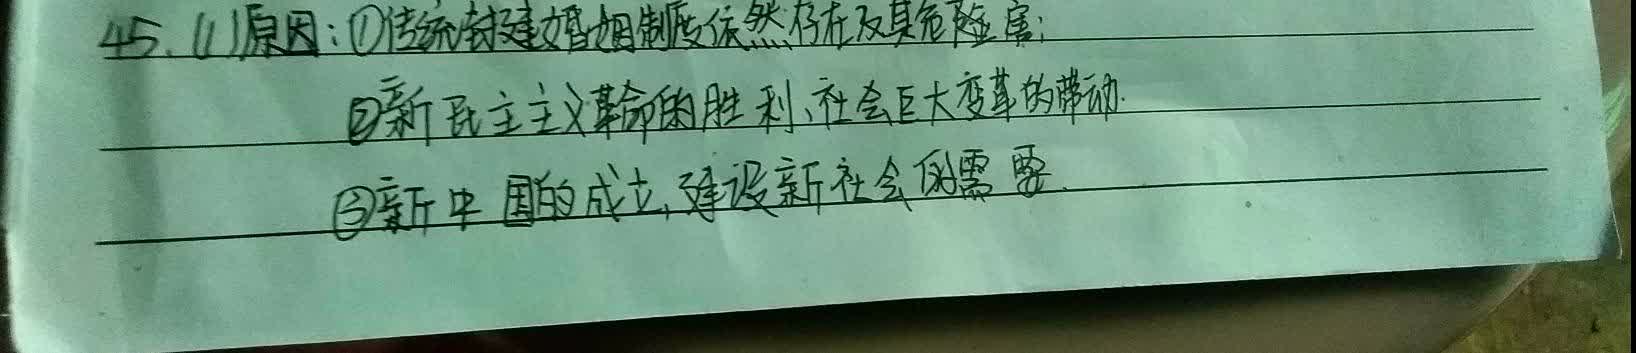 45. (1)原因:①传统封建婚姻制度依然存在及其危险害;
②新民主主义革命的胜利、社会巨大变革的带动.
③新中国的成立,建设新社会的需要.